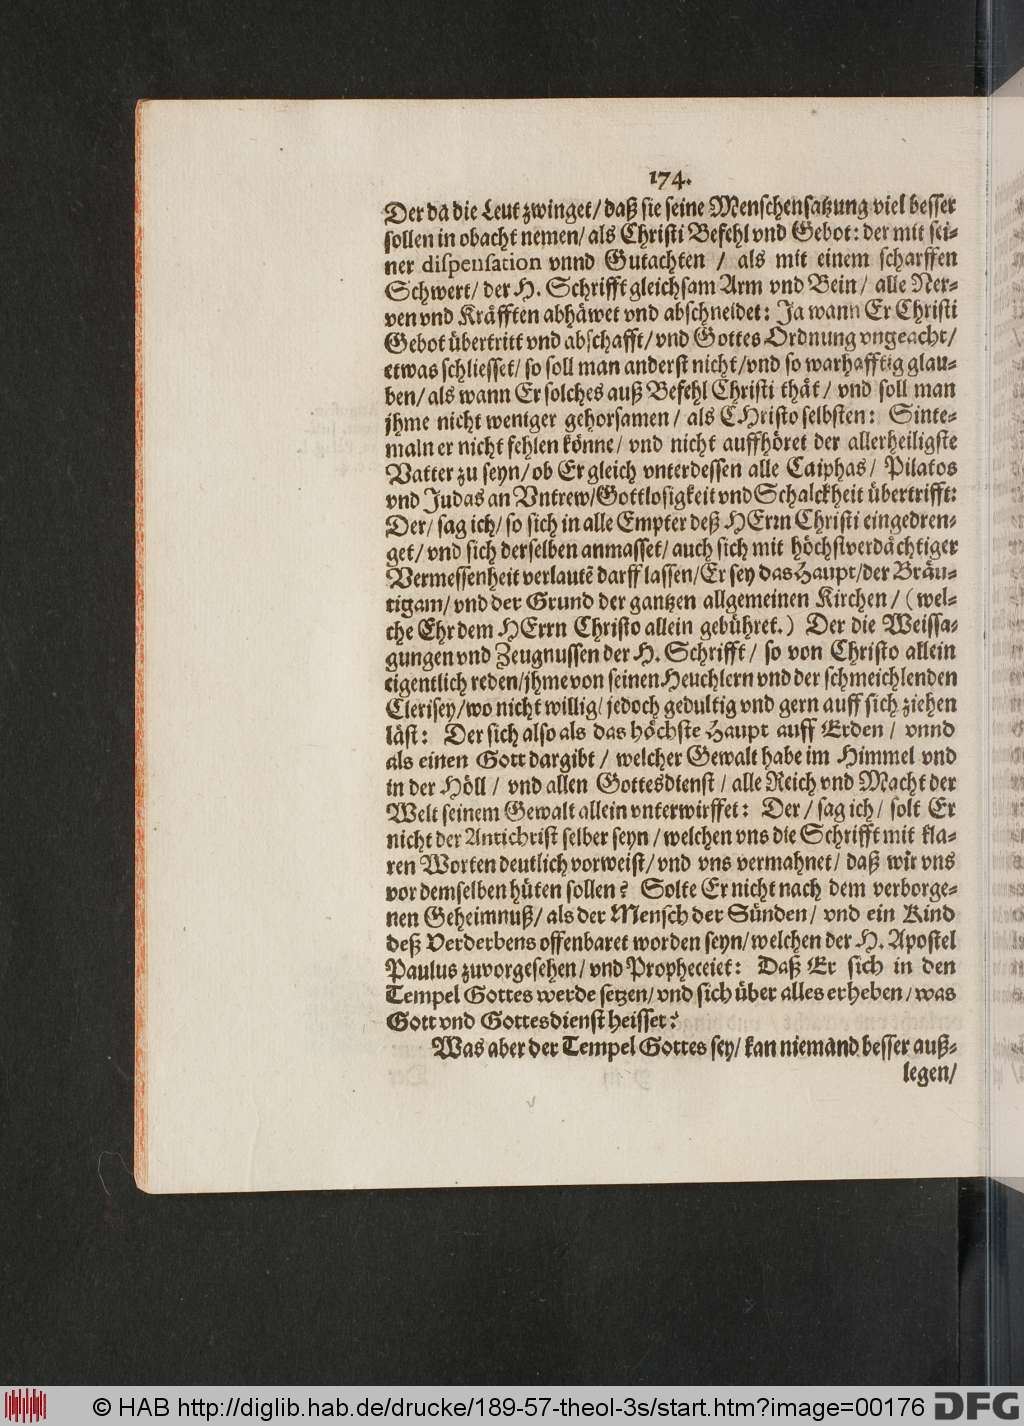 174.
Der da die Leut zwinget/ daß sie seine Menschensatzung viel besser
sollen in obacht nemen/ als Christi Befehl vnd Gebot: der mit sei-
ner dispensation vnnd Gutachten / als mit einem scharffen
Schwert/ der H. Schrifft gleichsam Arm vnd Bein/ alle Ner-
ven vnd Kräfften abhäwet vnd abschneidet: Ja wann Er Christi
Gebot übertritt vnd abschafft/ vnd Gottes Ordnung vngeacht/
etwas schliesset/ so soll man anderst nicht/ vnd so warhafftig glau-
ben/ als wann Er solches auß Befehl Christi thät/ vnd soll man
jhme nicht weniger gehorsamen/ als CHristo selbsten: Sinte-
maln er nicht fehlen könne/ vnd nicht auffhöret der allerheiligste
Vatter zu seyn/ ob Er gleich vnterdessen alle Caiphas/ Pilatos
vnd Judas an Vntrew/ Gottlosigkeit vnd Schalckheit übertrifft:
Der/ sag ich/ so sich in alle Empter deß HErrn Christi eingedren-
get/ vnd sich derselben anmasset/ auch sich mit höchstverdächtiger
Vermessenheit verlautē darff lassen/ Er sey das Haupt/ der Bräu-
tigam/ vnd der Grund der gantzen allgemeinen Kirchen/ (wel-
che Ehr dem HErrn Christo allein gebühret.) Der die Weissa-
gungen vnd Zeugnussen der H. Schrifft/ so von Christo allein
eigentlich reden/ jhme von seinen Heuchlern vnd der schmeichlenden
Clerisey/ wo nicht willig/ jedoch gedultig vnd gern auff sich ziehen
läst: Der sich also als das höchste Haupt auff Erden/ vnnd
als einen Gott dargibt/ welcher Gewalt habe im Himmel vnd
in der Höll/ vnd allen Gottesdienst/ alle Reich vnd Macht der
Welt seinem Gewalt allein vnterwirffet: Der/ sag ich/ solt Er
nicht der Antichrist selber seyn/ welchen vns die Schrifft mit kla-
ren Worten deutlich vorweist/ vnd vns vermahnet/ daß wir vns
vor demselben hüten sollen? Solte Er nicht nach dem verborge-
nen Geheimnuß/ als der Mensch der Sünden/ vnd ein Kind
deß Verderbens offenbaret worden seyn/ welchen der H. Apostel
Paulus zuvorgesehen/ vnd Propheceiet: Daß Er sich in den
Tempel Gottes werde setzen/ vnd sich über alles erheben/ was
Gott vnd Gottesdienst heisset?
Was aber der Tempel Gottes sey/ kan niemand besser auß-
legen/
© HAB http://diglib.hab.de/drucke/189-57-theol-3s/start.htm?image=00176
DFG